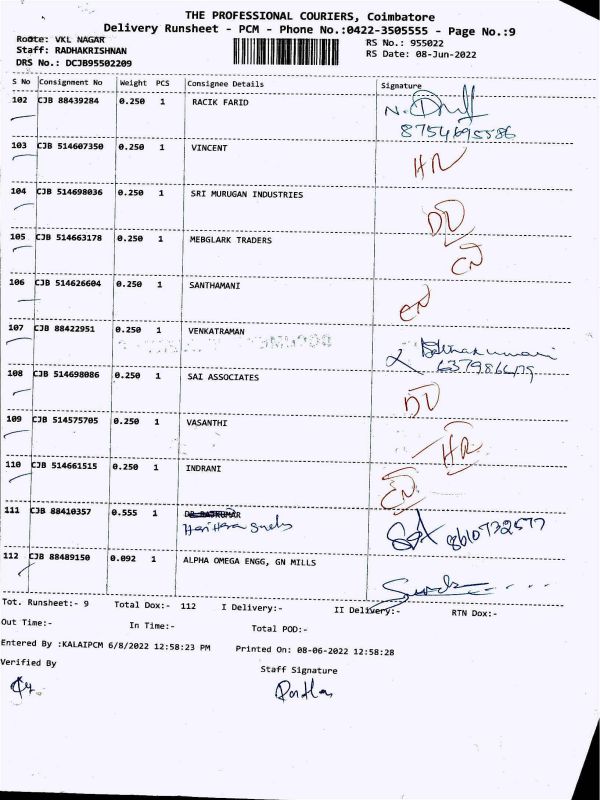 THE PROFESSIONAL COURIERS, Coimbatore
Delivery Runsheet - PCM - Phone No.:0422-3505555 - Page No.:9
Route: VKL NAGAR
RS No.: 955022
Staff: RADHAKRISHNAN
RS Date: 08-Jun-2022
DRS No.: DCJB95502209
S No Consignment No Weight PCS Consignee Details Signature
102 CJB 88439284 0.250 1 RACIK FARID
8754695586
103 CJB 514607350 0.250 1 VINCENT HR
104 CJB 514698036 0.250 1 SRI MURUGAN INDUSTRIES DL
105 CJB 514663178 0.250 1 MEBGLARK TRADERS CN
106 CJB 514626604 0.250 1 SANTHAMANI CN
107 CJB 88422951 0.250 1 VENKATRAMAN
108 CJB 514698086 0.250 1 SAI ASSOCIATES DL
109 CJB 514575705 0.250 1 VASANTHI HR
110 CJB 514661515 0.250 1 INDRANI CN
111 CJB 88410357 0.555 1 8610732577
112 CJB 88489150 0.092 1 ALPHA OMEGA ENGG, GN MILLS
Tot. Runsheet:- 9 Total Dox:- 112 I Delivery:- II Delivery:- RTN Dox:-
Out Time:- In Time:- Total POD:-
Entered By :KALAIPCM 6/8/2022 12:58:23 PM Printed On: 08-06-2022 12:58:28
Verified By Staff Signature